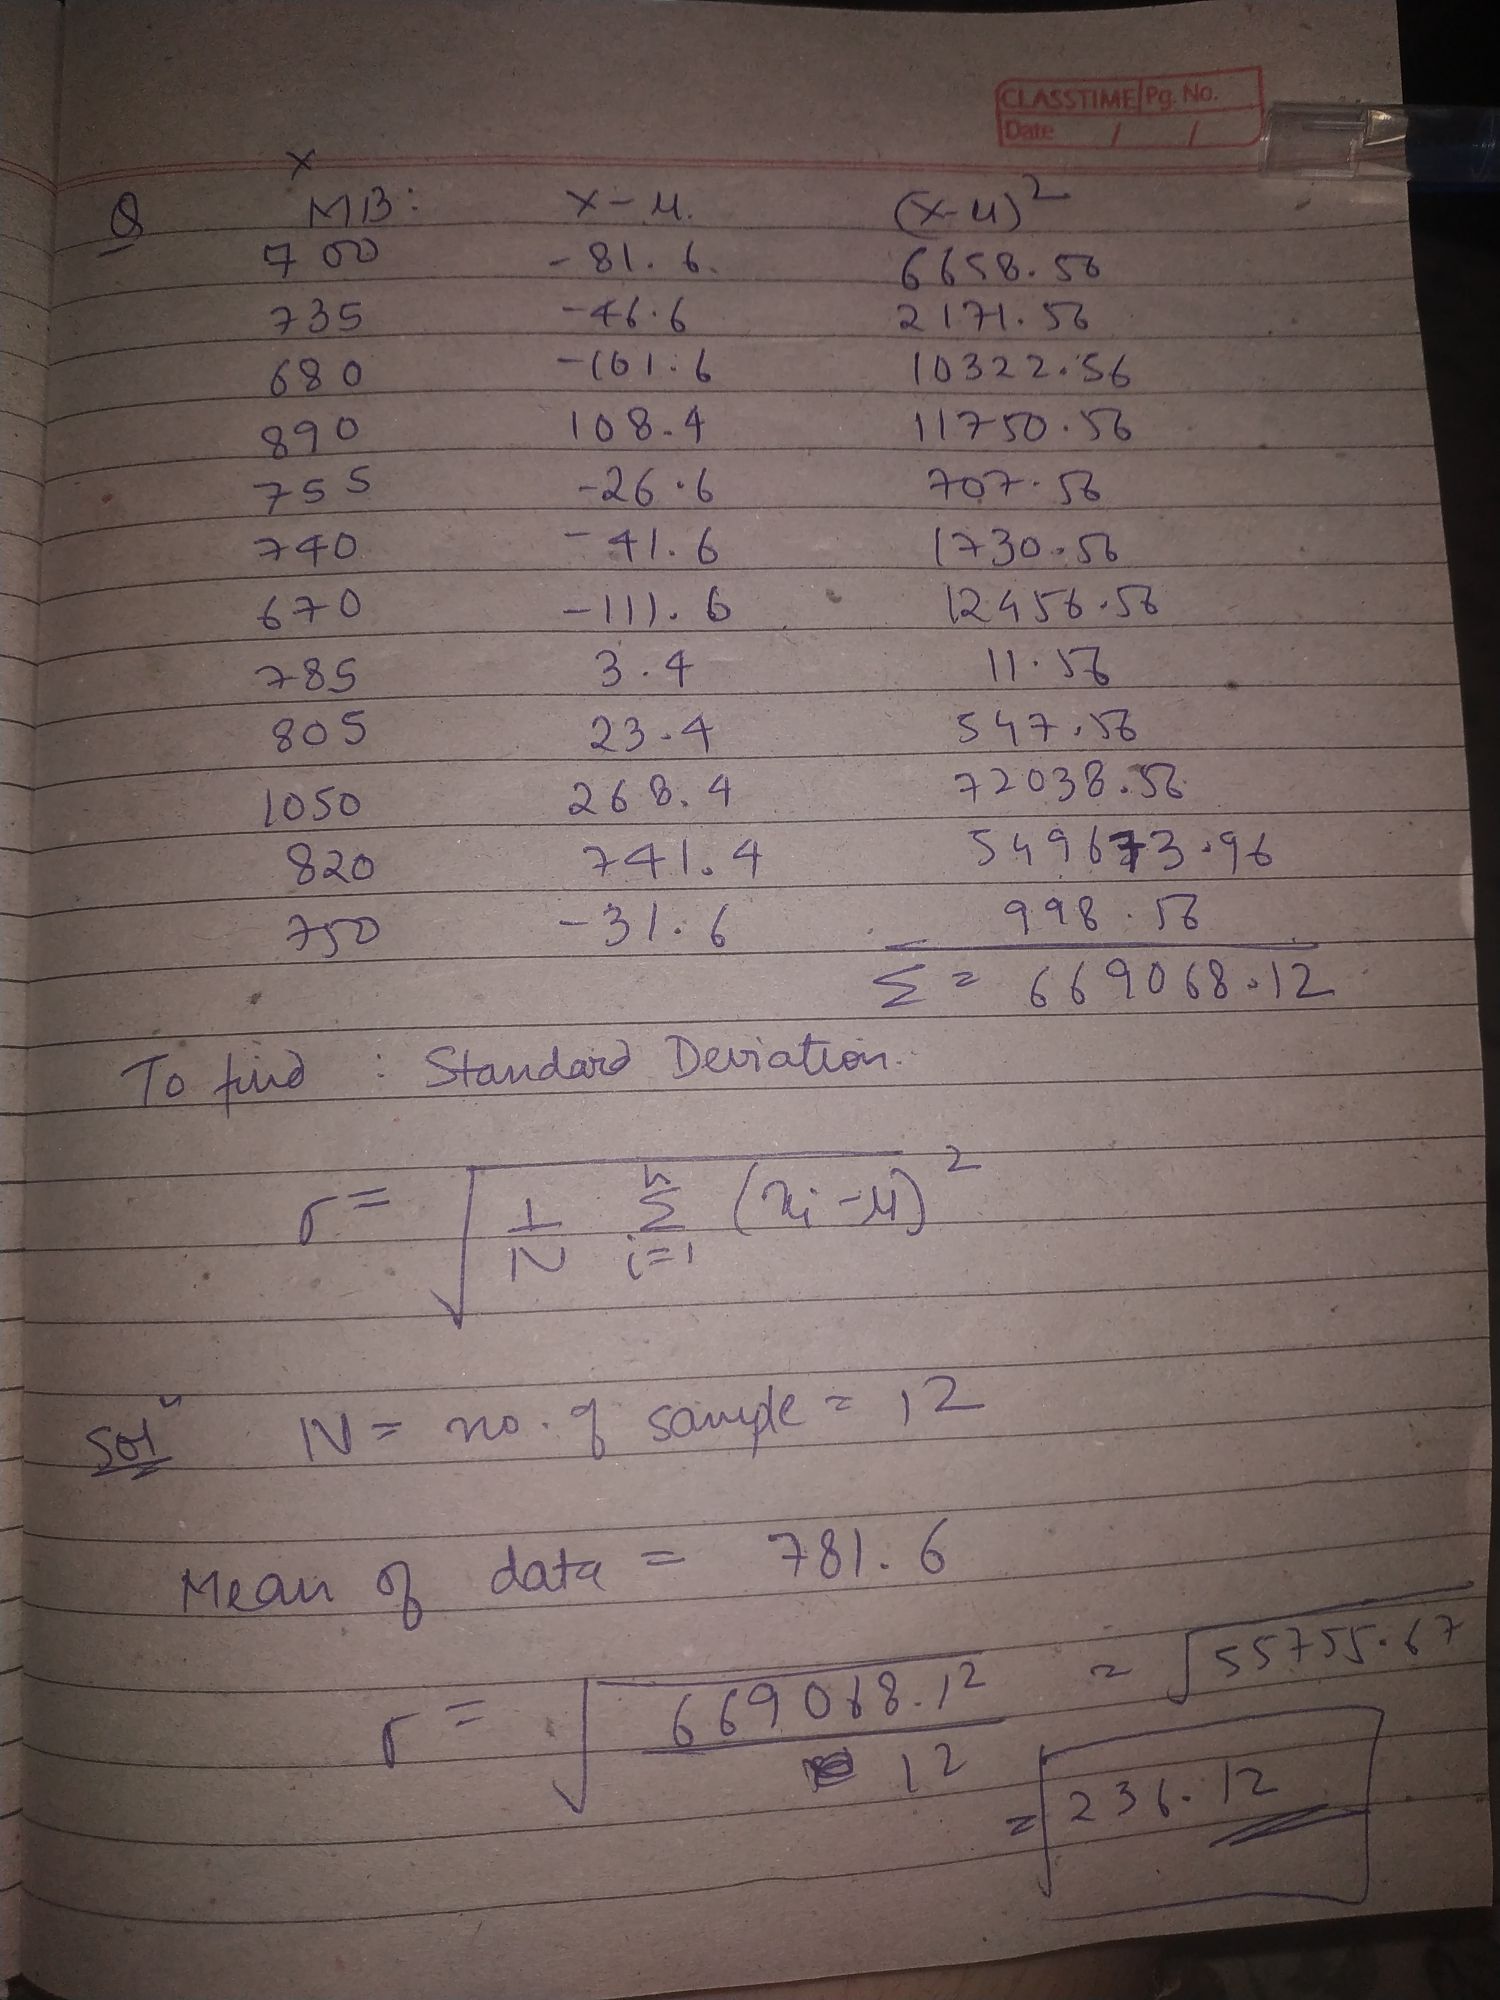 CLASSTIME Pg. No.
Date / /
x
Q MB: x-μ. (x-μ)²
700 -81.6. 6658.56
735 -46.6 2171.56
680 -101.6 10322.56
890 108.4 11750.56
755 -26.6 707.56
740 -41.6 1730.56
670 -111.6 12456.56
785 3.4 11.56
805 23.4 547.56
1050 268.4 72038.56
820 741.4 549673.96
750 -31.6 998.56
Σ = 669068.12
To find : Standard Deviation.
σ = √(1/N Σ_{i=1}^{n} (xᵢ-μ)²)
Solⁿ N = no. of sample = 12
Mean of data = 781.6
σ = √(669068.12 / 12) = √55755.67
= 236.12